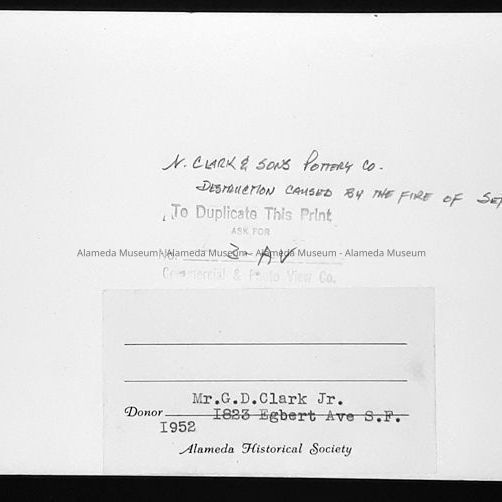 N. CLARK & SONS POTTERY CO.
DESTRUCTION CAUSED BY THE FIRE OF SE
To Duplicate This Print
ASK FOR
Alameda Museum - Alameda Museum - Alameda Museum - Alameda Museum
No. 2-AV
Commercial & Photo View Co.
Mr.G.D.Clark Jr.
Donor 1823 Egbert Ave S.F.
1952
Alameda Historical Society